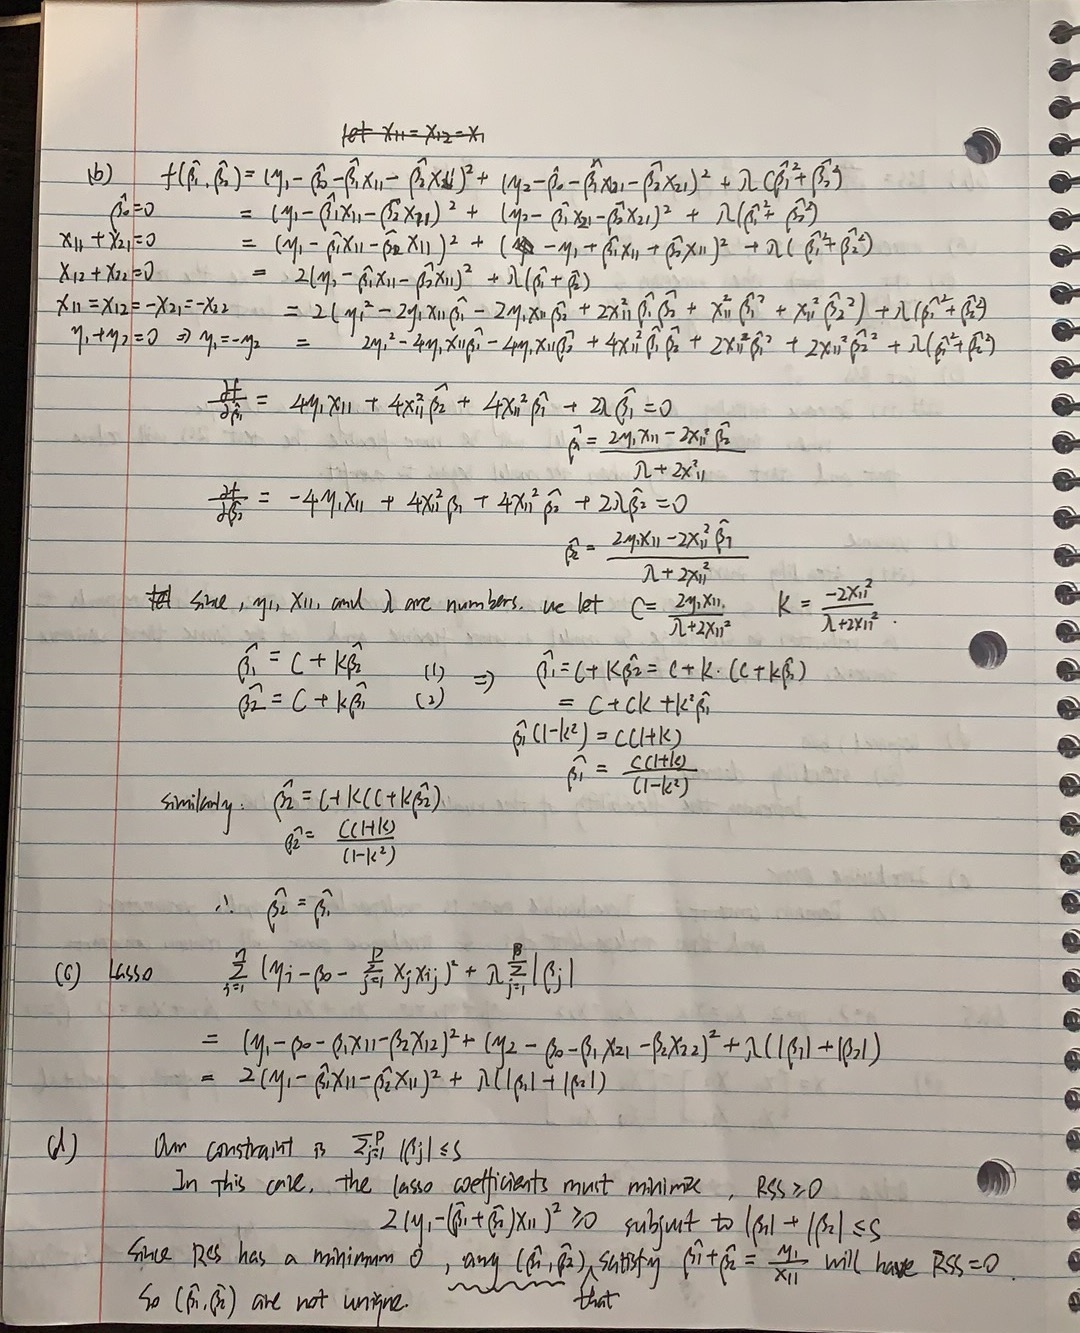 let x₁₁ = x₁₂ = x₁
(b) f(β̂₁, β̂₂) = (y₁ - β̂₀ - β̂₁x₁₁ - β̂₂x₁₁)² + (y₂ - β̂₀ - β̂₁x₂₁ - β̂₂x₂₁)² + λ(β̂₁² + β̂₂²)
β̂₀ = 0 = (y₁ - β̂₁x₁₁ - β̂₂x₂₁)² + (y₂ - β̂₁x₂₁ - β̂₂x₂₁)² + λ(β̂₁² + β̂₂²)
x₁₁ + x₂₁ = 0 = (y₁ - β̂₁x₁₁ - β̂₂x₁₁)² + (-y₁ + β̂₁x₁₁ + β̂₂x₁₁)² + λ(β̂₁² + β̂₂²)
x₁₂ + x₂₂ = 0 = 2(y₁ - β̂₁x₁₁ - β̂₂x₁₁)² + λ(β̂₁ + β̂₂)
x₁₁ = x₁₂ = -x₂₁ = -x₂₂ = 2(y₁² - 2y₁x₁₁β̂₁ - 2y₁x₁₁β̂₂ + 2x₁₁²β̂₁β̂₂ + x₁₁²β̂₁² + x₁₁²β̂₂²) + λ(β̂₁² + β̂₂²)
y₁ + y₂ = 0 ⇒ y₁ = -y₂ = 2y₁² - 4y₁x₁₁β̂₁ - 4y₁x₁₁β̂₂ + 4x₁₁²β̂₁β̂₂ + 2x₁₁²β̂₁² + 2x₁₁²β̂₂² + λ(β̂₁² + β̂₂²)
∂f/∂β̂₁ = 4y₁x₁₁ + 4x₁₁²β̂₂ + 4x₁₁²β̂₁ + 2λβ̂₁ = 0
β̂₁ = (2y₁x₁₁ - 2x₁₁²β̂₂)/(λ + 2x₁₁²)
∂f/∂β̂₂ = -4y₁x₁₁ + 4x₁₁²β₁ + 4x₁₁²β̂₂ + 2λβ̂₂ = 0
β̂₂ = (2y₁x₁₁ - 2x₁₁²β̂₁)/(λ + 2x₁₁²)
Since, y₁, x₁₁, and λ are numbers. we let C = 2y₁x₁₁/(λ+2x₁₁²) K = -2x₁₁²/(λ+2x₁₁²).
β̂₁ = C + Kβ̂₂ (1) ⇒ β̂₁ = C + Kβ̂₂ = C + K·(C + Kβ̂₁)
β̂₂ = C + Kβ̂₁ (2) = C + CK + K²β̂₁
β̂₁(1-K²) = C(1+K)
β̂₁ = C(1+K)/(1-K²)
Similarly. β̂₂ = C + K(C + Kβ̂₂)
β̂₂ = C(1+K)/(1-K²)
∴ β̂₂ = β̂₁
(c) Lasso Σⁿᵢ₌₁ (yᵢ - β₀ - Σᵖⱼ₌₁ xⱼxᵢⱼ)² + λ Σᵖⱼ₌₁ |βⱼ|
= (y₁ - β₀ - β₁x₁₁ - β₂x₁₂)² + (y₂ - β₀ - β₁x₂₁ - β₂x₂₂)² + λ(|β₁| + |β₂|)
= 2(y₁ - β̂₁x₁₁ - β̂₂x₁₁)² + λ(|β₁| + |β₂|)
(d) Our constraint is Σᵖⱼ₌₁ |βⱼ| ≤ s
In this case, the lasso coefficients must minimize, RSS ≥ 0
2(y₁ - (β̂₁ + β̂₂)x₁₁)² ≥ 0 subject to |β₁| + |β₂| ≤ s
Since RSS has a minimum 0, any (β̂₁, β̂₂) that satisfy β̂₁ + β̂₂ = y₁/x₁₁ will have RSS = 0.
So (β̂₁, β̂₂) are not unique.